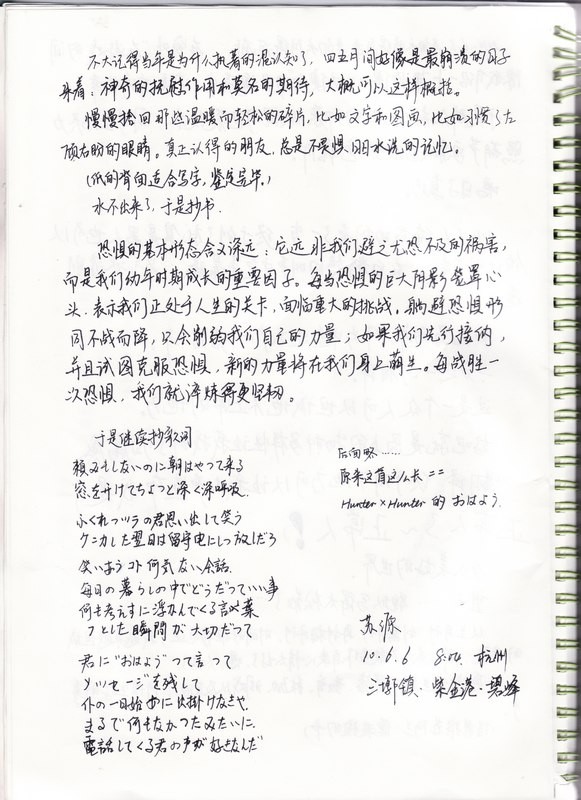 不大记得当年是为什么执着的混认知了，四五月间好像是最崩溃的日子
来着：神奇的抚慰作用和莫名的期待，大概可以这样概括。
慢慢捡回那些温暖而轻松的碎片，比如文字和图画，比如习惯了左
顾右盼的眼睛。真正认得的朋友，总是不畏惧旧日水洗的记忆。
(纸的背面适合写字，鉴定完毕。)
水不出来了，于是抄书.
恐惧的基本形态含义深远：它远非我们避之尤恐不及的祸害，
而是我们幼年时期成长的重要因子。每当恐惧的巨大阴影笼罩心
头，表示我们正处于人生的关卡，面临重大的挑战。躲避恐惧形
同不战而降，只会削弱我们自己的力量；如果我们先行接纳，
并且试图克服恐惧，新的力量将在我们身上萌生。每战胜一
次恐惧，我们就淬炼得更坚韧。
于是继续抄歌词
頼みもしないのに朝はやって来る
窓を开けてちょっと深く深呼吸.
ふくれっツラの君思い出して笑う
ケンカした翌日は留守電にしっ放しだろ
笑いあうコト何気ない会話
毎日の暮らしの中でどうだっていい事
何も考えずに浮かんでくる言葉
フとした瞬間が大切だって
君に"おはよう"って言って
メッセージを残して
仆の一日始めに出掛けなきゃ.
まるで何もなかったみたいに.
電話してくる君の声が好きなんだ
后面略……
原来这首这么长 = =
Hunter×Hunter 的 おはよう.
苏源
10.6.6 8:04. 杭州
三墩镇·紫金港·碧峰